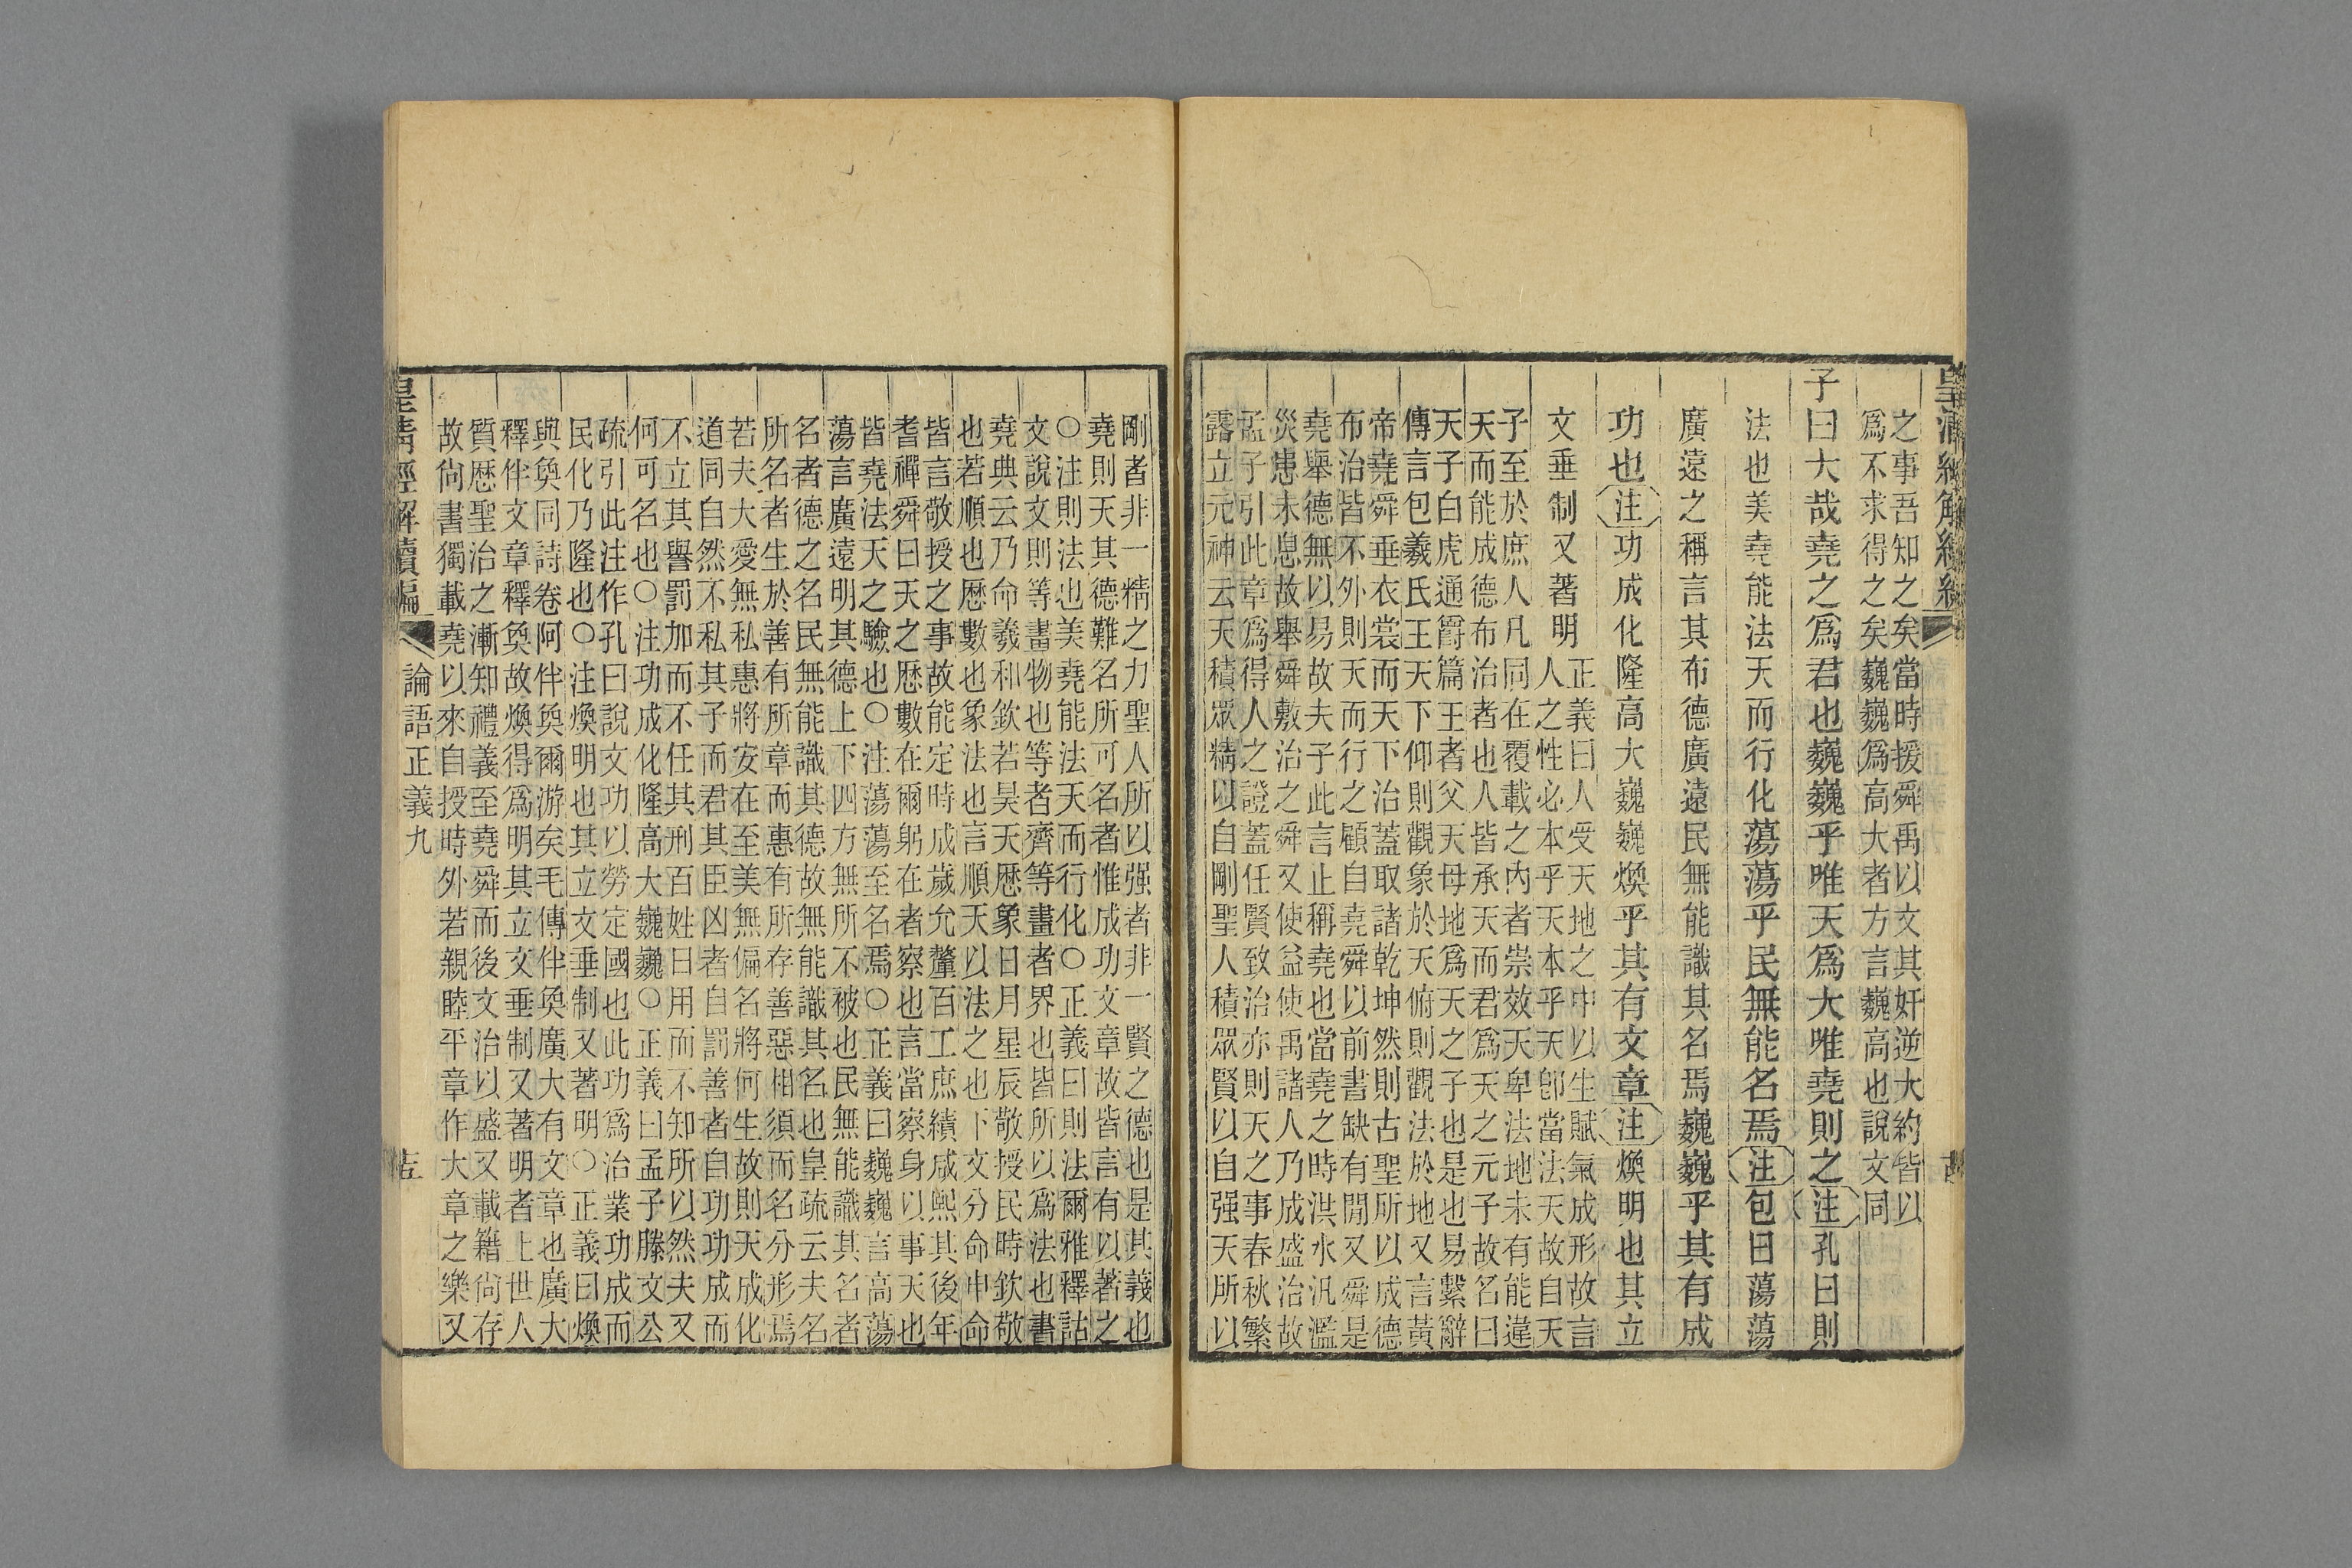 之事吾知之矣當時援舜禹以文其奸逆大約皆以
爲不求得之矣巍巍爲高大者方言巍高也說文同
子曰大哉堯之爲君也巍巍乎唯天爲大唯堯則之注孔曰則
法也美堯能法天而行化蕩蕩乎民無能名焉注包曰蕩蕩
廣遠之稱言其布德廣遠民無能識其名焉巍巍乎其有成
功也注功成化隆高大巍巍煥乎其有文章注煥明也其立
文垂制又著明
正義曰人受天地之中以生賦氣成形故言
人之性必本乎天本乎天卽當法天故自天
子至於庶人凡同在覆載之內者崇效天卑法地未有能違
天而能成德布治者也人皆承天而君爲天之元子故名曰
天子白虎通爵篇王者父天母地爲天之子也是也易繫辭
傳言包羲氏王天下仰則觀象於天俯則觀法於地又言黃
帝堯舜垂衣裳而天下治蓋取諸乾坤然則古聖所以成德
布治皆不外則天而行之顧自堯舜以前書缺有閒又舜是
堯舉德無以易故夫子此言止稱堯也當堯之時洪水汎濫
災患未息故舉舜敷治之舜又使益使禹諸人乃成盛治故
孟子引此章爲得人之證蓋任賢致治亦則天之事春秋繁
露立元神云天積眾精以自剛聖人積眾賢以自强天所以
剛者非一精之力聖人所以强者非一賢之德也是其義也
堯則天其德難名所可名者惟成功文章故皆言有以著之
○注則法也美堯能法天而行化○正義曰則法爾雅釋詁
文說文則等畫物也等者齊等畫者界也皆所以爲法也書
堯典云乃命羲和欽若昊天厯象日月星辰敬授民時欽敬
也若順也厯數也象法也言順天以法之也下文分命申命
皆言敬授之事故能定時成歲允釐百工庶績咸熙其後年
耆禪舜曰天之厯數在爾躬在者察也言當察身以事天也
皆堯法天之驗也○注蕩蕩至名焉○正義曰巍巍言高蕩
蕩言廣遠明其德上下四方無所不被也民無能識其名者
名者德之名民無能識其德故無能識其名也皇疏云夫名
所名者生於善有所章而惠有所存善惡相須而名分形焉
若夫大愛無私惠將安在至美無偏名將何生故則天成化
道同自然不私其子而君其臣凶者自罰善者自功功成而
不立其譽罰加而不任其刑百姓日用而不知所以然夫又
何可名也○注功成化隆高大巍巍○正義曰孟子滕文公
疏引此注作孔曰說文功以勞定國也此功爲治業功成而
民化乃隆也○注煥明也其立文垂制又著明○正義曰煥
與奐同詩卷阿伴奐爾游矣毛傳伴奐廣大有文章也廣大
釋伴文章釋奐故煥得爲明其立文垂制又著明者上世人
質厯聖治之漸知禮義至堯舜而後文治以盛又載籍尙存
故尙書獨載堯以來自授時外若親睦平章作大章之樂又
皇清經解續編
論語正義九